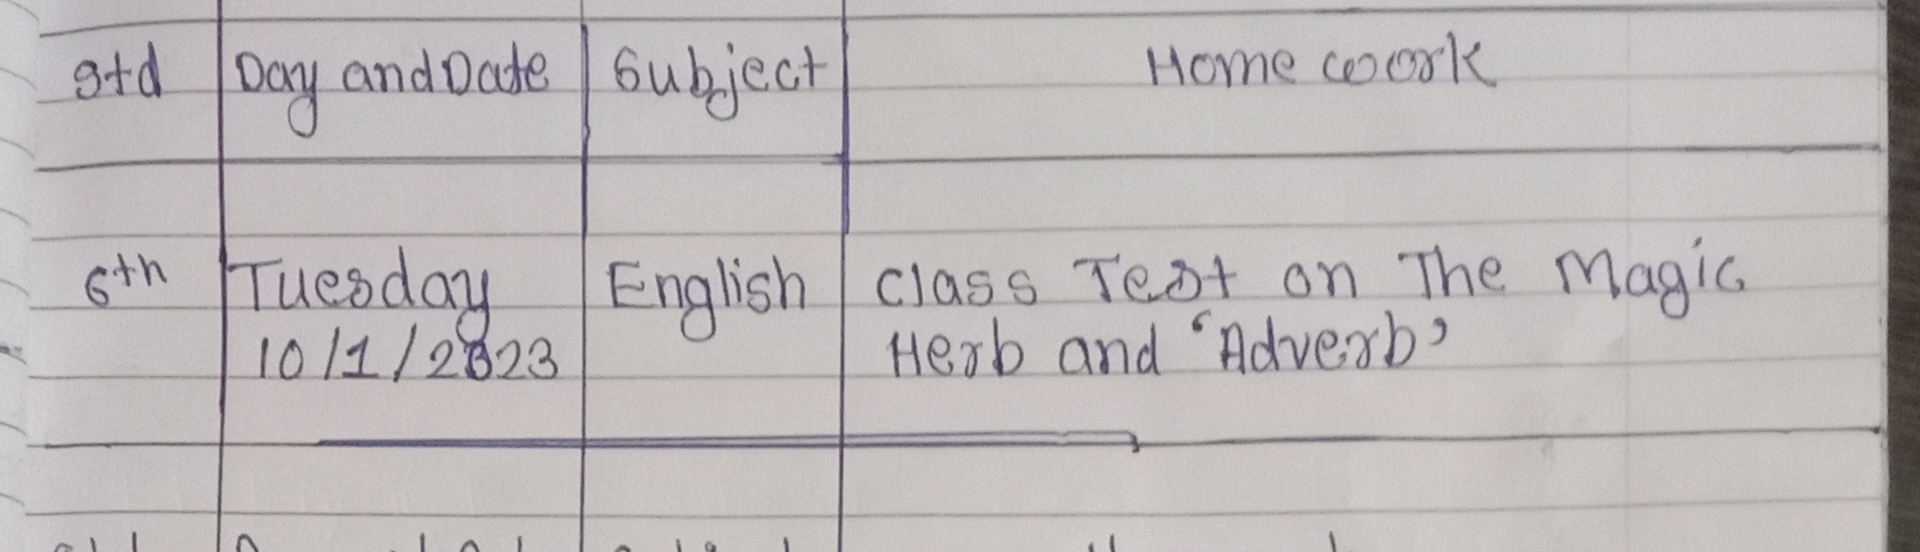 Std Day and Date Subject Home work
6th Tuesday English Class Test on The Magic
10/1/2023 Herb and 'Adverb'